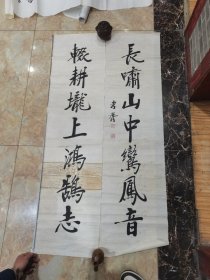 長嘯山中鸞鳳音
輟耕壠上鴻鵠志